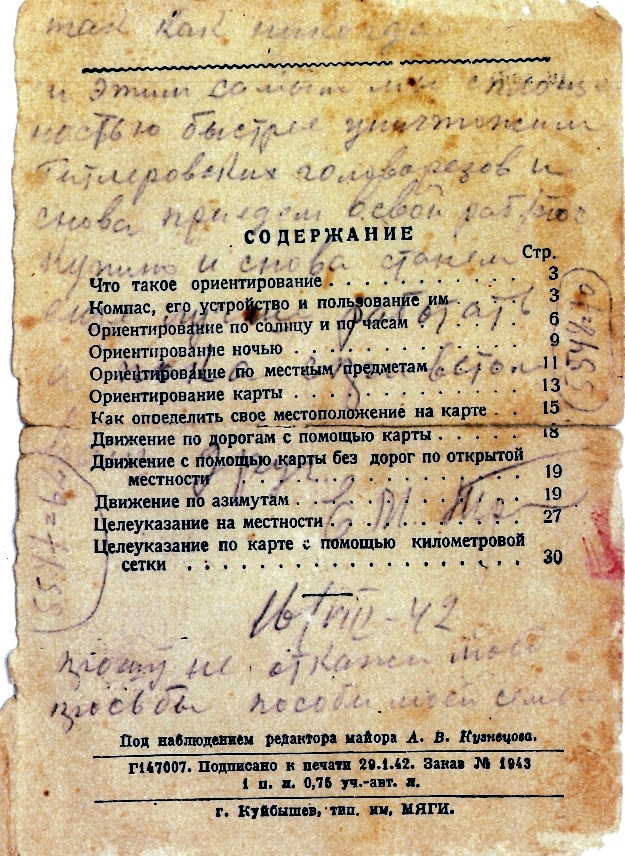 так как никогда
и этим самым мы с
ностью быстрее уничтожим
Гитлеровских головорезов и
снова приедем в свой
и снова станем
СОДЕРЖАНИЕ
Стр.
Что такое ориентирование . . . . . . . . . 3
Компас, его устройство и пользование им . . 3
Ориентирование по солнцу и по часам . . . . 6
работать
Ориентирование ночью . . . . . . . . . . . 9
Ориентирование по местным предметам . . . 11
Ориентирование карты . . . . . . . . . . . 13
Как определить свое местоположение на карте . . 15
Движение по дорогам с помощью карты . . . . 18
Движение с помощью карты без дорог по открытой
местности . . . . . . . . . . . . . . . 19
Движение по азимутам . . . . . . . . . . . 19
Целеуказание на местности . . . . . . . . . 27
Целеуказание по карте с помощью километровой
сетки . . . . . . . . . . . . . . . . . 30
16/VIII-42
прошу не откажи моей
просьбы пособи моей семье
Под наблюдением редактора майора А. В. Кузнецова.
Г147007. Подписано к печати 29.1.42. Заказ № 1943
1 п. л. 0,75 уч.-авт. л.
г. Куйбышев, тип. им, МЯГИ.